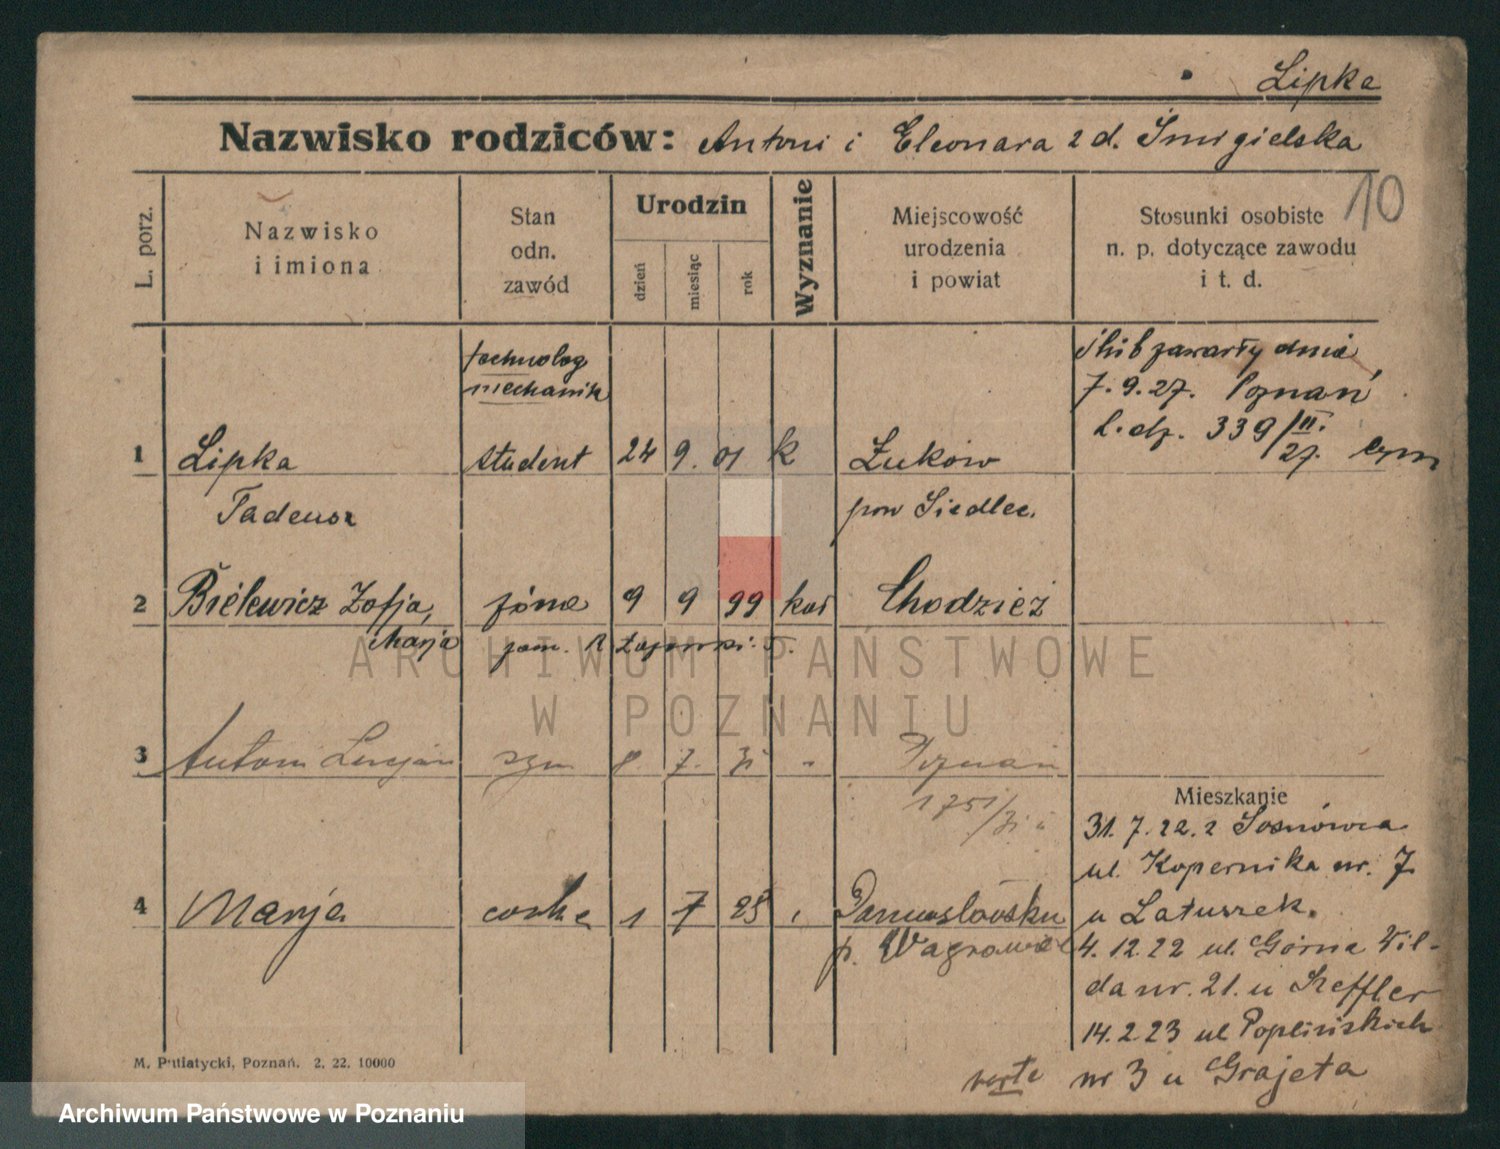 Lipka
Nazwisko rodziców: Antoni i Eleonara z d. Śmigielska
10
L. porz.
Nazwisko
i imiona
Stan
odn.
zawód
Urodzin
dzień
miesiąc
rok
Wyznanie
Miejscowość
urodzenia
i powiat
Stosunki osobiste
n. p. dotyczące zawodu
i t. d.
technolog
mechanik
ślub zawarty dnia
7. 9. 27. Poznań
L. dz. 339/III.
27.
1 Lipka student 24 9. 01 k Łuków
Tadeusz pow Siedlec.
2 Bielewicz Zofja, żona 9 9 99 kat Chodzież
Marja
ARCHIWUM PAŃSTWOWE
W POZNANIU
3 Antoni Lucjan syn 8. 7. 31 " Poznań
1751/31
Mieszkanie
31. 7. 22. z Sosnówca
ul. Kopernika nr. 7
u Latuszek.
4 Marja corka 1 7 28 Damasławsku
p. Wągrowiec
4. 12. 22 ul. Górna Wil-
da nr. 21. u Szeffler
14. 2. 23 ul Poplińskich
nr 3 u Grajeta
verte
M. Putiatycki, Poznań. 2. 22. 10000
Archiwum Państwowe w Poznaniu